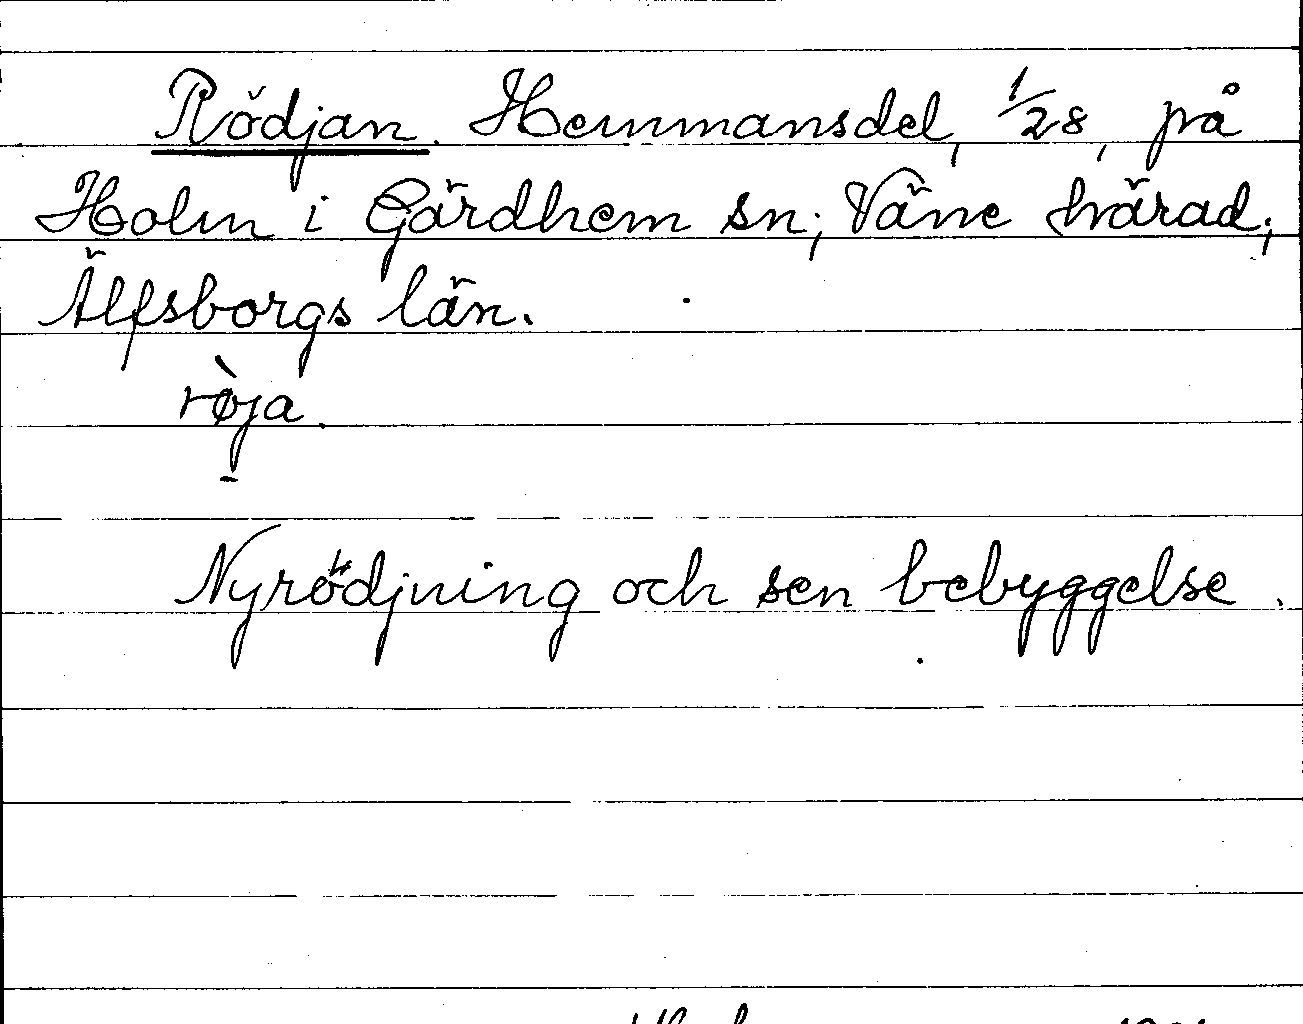 Rödjan. Hemmansdel, 1/28, på
Holm i Gärdhem sn; Väne härad;
Älfsborgs län.
rø̀ja.
Nyrödjning och sen bebyggelse.